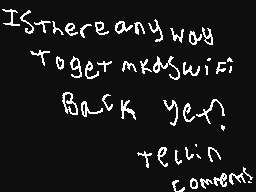 Is there any way
to get mkds wifi
Back yet?
tell in
comments